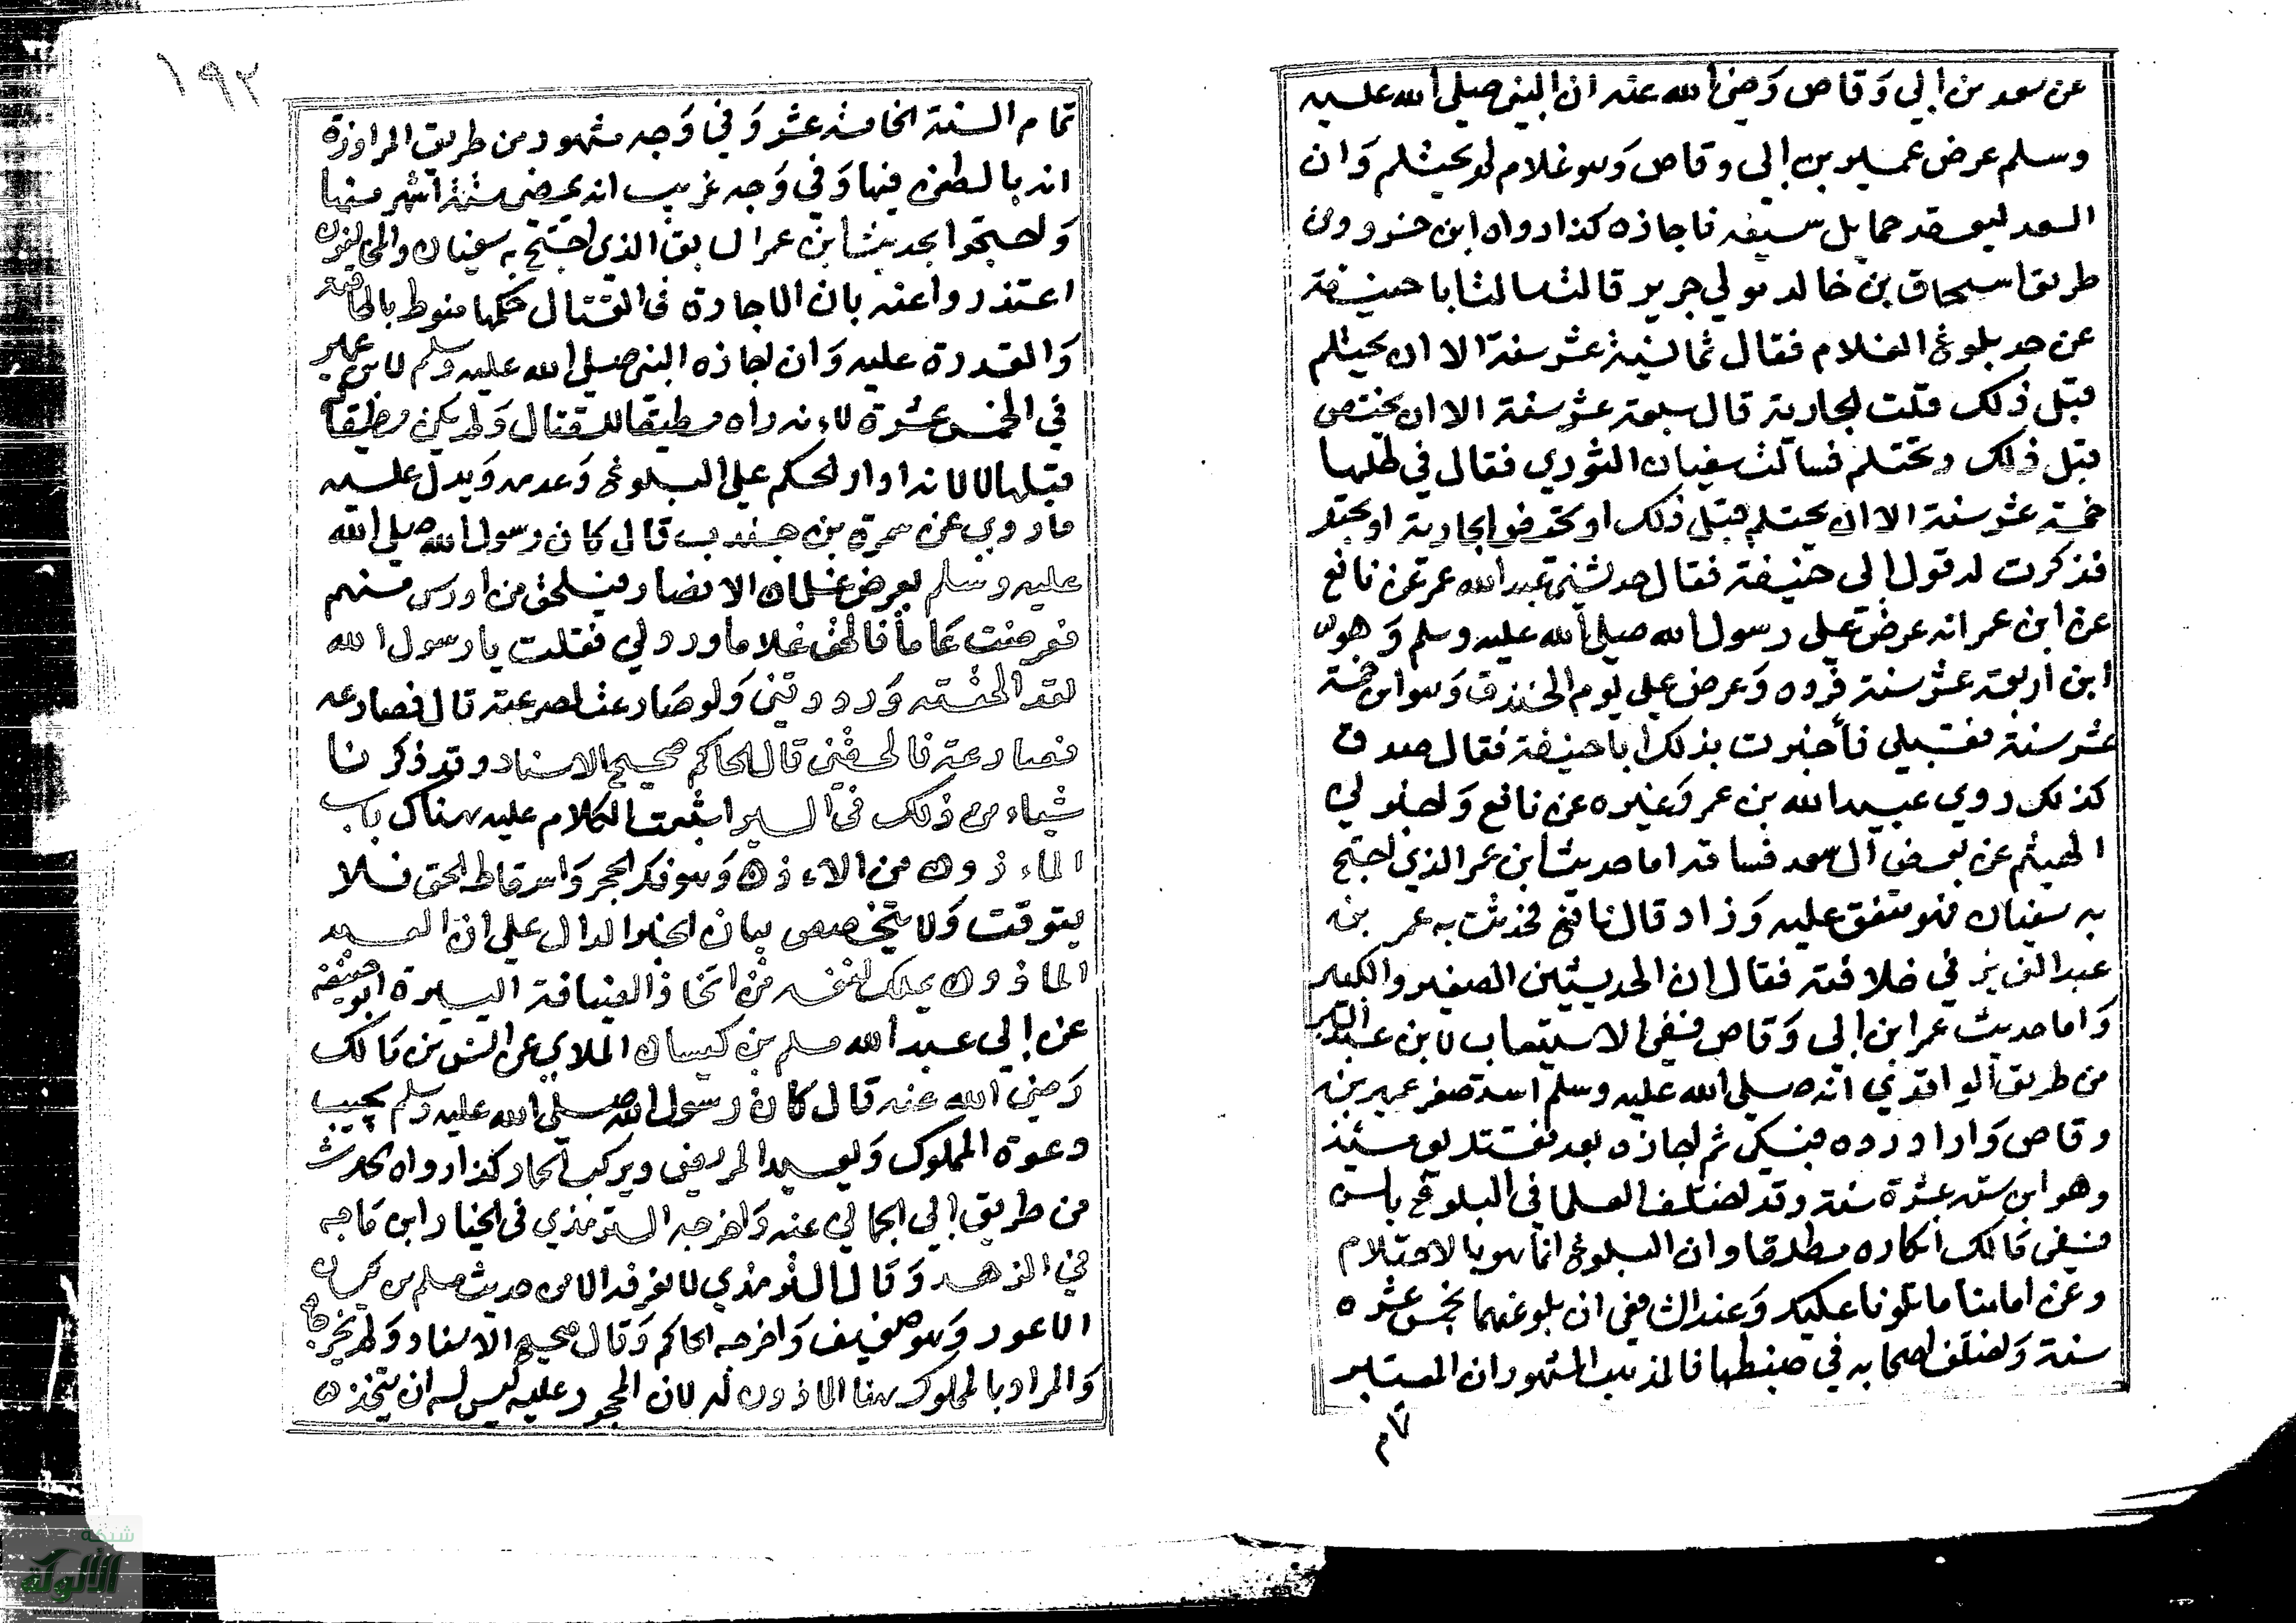 عن سعد بن ابي وقاص رضي الله عنه ان النبي صلى الله عليه
وسلم عرض عمير بن ابي وقاص وهو غلام لم يحتلم وان
السعد ليعقد حمايل سيفه فاجازه كذا رواه ابن خسرو من
طريق اسحاق بن خالد مولي جرير قال سالت ابا حنيفة
عن حد بلوغ الغلام فقال ثمانية عشر سنة الا ان يحتلم
قبل ذلك قلت الجارية قال سبعة عشر سنة الا ان تحتض
قبل ذلك وتحتلم فسالت سفيان الثوري فقال في كلها
خمسة عشر سنة الا ان يحتلم قبل ذلك او الجارية او
فذكرت له قول ابي حنيفة فقال حدثني عبد الله عمر عن نافع
عن ابن عمر انه عرض علي رسول الله صلى الله عليه وسلم وهو
ابن اربعة عشر سنة فرده وعرض علي يوم الخندق وهو ابن خمسة
عشر سنة فقبلي فأخبرت بذلك ابا حنيفة فقال صدق
كذلك روي عبيد الله بن عمر وغيره عن نافع واخبرني
الهيثم عن بعض آل سعد فساقه اما حديث ابن عمر الذي احتج
به سفيان فهو متفق عليه وزاد قال نافع فحدثت به عمر بن
عبد العزيز في خلافته فقال ان الحديثين الصغير والكبير
واما حديث عمر ابن ابي وقاص ففي الاستيعاب لابن عبد البر
من طريق الواقدي انه صلى الله عليه وسلم استصغر عمير بن
وقاص واراد رده فبكى ثم اجازه بعد فقتل يومئذ
وهو ابن ستة عشرة سنة وقد اختلف العلما في البلوغ بالسن
فنفى مالك انكاره مطلقا وان البلوغ انما هو بالاحتلام
وعن امامنا ما تلونا عليك وعند الشافعي ان بلوغهما بخمس عشره
سنة واختلف اصحابه في ضبطها فالمذهب المشهور ان المعتبر
١٩٢
تمام السنة الخامسة عشر وفي وجه مشهور من طريق المراوزة
انه بالطعن فيها وفي وجه غريب انه يمضي ستة اشهر منها
واحتجوا بحديث ابن عمر السابق الذي احتج به سفيان والمخالفون
اعتذروا عنه بان الاجازة في القتال حكمها منوط بالطاقة
والقدرة عليه وان اجازه النبي صلى الله عليه وسلم لابن عمر
في الخمس عشرة لاءنه راه مطيقا للقتال ولم يكن مطيقا
قبلها لا لانه ادار الحكم علي البلوغ وعدمه ويدل عليه
ما روي عن سمرة بن جندب قال كان رسول الله صلى الله
عليه وسلم يعرض غلمان الانصار فيلحق من ادرك منهم
فعرضت عاما فالحق غلاما وردني فقلت يا رسول الله
لقد الحقته ورددتني ولو صارعته لصرعته قال فصارعه
فصارعته فالحقني قال الحاكم صحيح الاسناد وقد ذكرنا
شياء من ذلك في السير اشبعت الكلام عليه هناك باب
الماءذون من الاءذن وهو فك الحجر واسقاط الحق فلا
يتوقت ولا يتخصص بيان الخبر الدال علي ان العبد
الماذون يملك لنفسه من اتخاذ الضيافة اليسيرة ابو حنيفة
عن ابي عبد الله مسلم بن كيسان الملاي عن انس بن مالك
رضي الله عنه قال كان رسول الله صلى الله عليه وسلم يجيب
دعوة المملوك ويعيد المريض ويركب الحمار كذا رواه الحارث
من طريق ابي الجمالي عنه واخرجه الترمذي في الجنا وابن ماجه
في الزهد وقال الترمذي لا نعرفه الا من حديث مسلم بن كيسان
الاعور وهو ضعيف واخرجه الحاكم وقال صحيح الاسناد ولم يخرجاه
والمراد بالمملوك هنا الماذون له لان المحجور عليه ليس له ان يتخذ